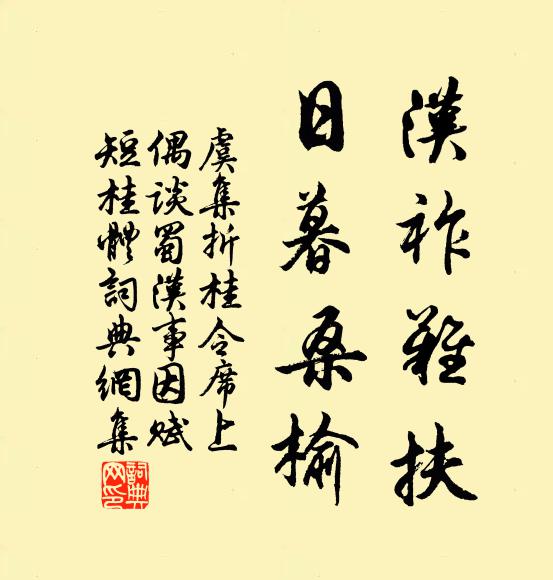 漢祚難扶
日暮桑榆
虞集折桂令席上
偶談蜀漢事因賦
短桂體詞典網集
詞典網印